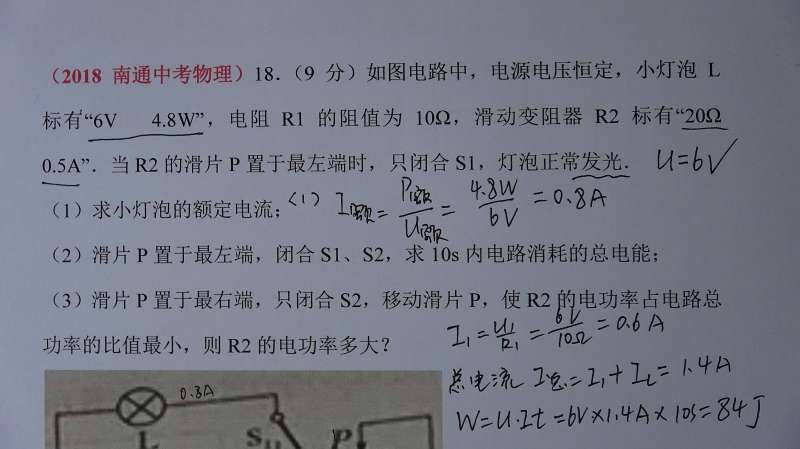 （2018 南通中考物理）18.（9 分）如图电路中，电源电压恒定，小灯泡 L
标有“6V 4.8W”，电阻 R1 的阻值为 10Ω，滑动变阻器 R2 标有“20Ω
0.5A”．当 R2 的滑片 P 置于最左端时，只闭合 S1，灯泡正常发光． U=6V
（1）求小灯泡的额定电流；<1) I额=P额/U额=4.8W/6V=0.8A
（2）滑片 P 置于最左端，闭合 S1、S2，求 10s 内电路消耗的总电能；
（3）滑片 P 置于最右端，只闭合 S2，移动滑片 P，使 R2 的电功率占电路总
功率的比值最小，则 R2 的电功率多大？
I₁=U₁/R₁=6V/10Ω=0.6A
总电流 I总=I₁+I_L=1.4A
W=U·It=6V×1.4A×10s=84J
0.8A
S₁
P